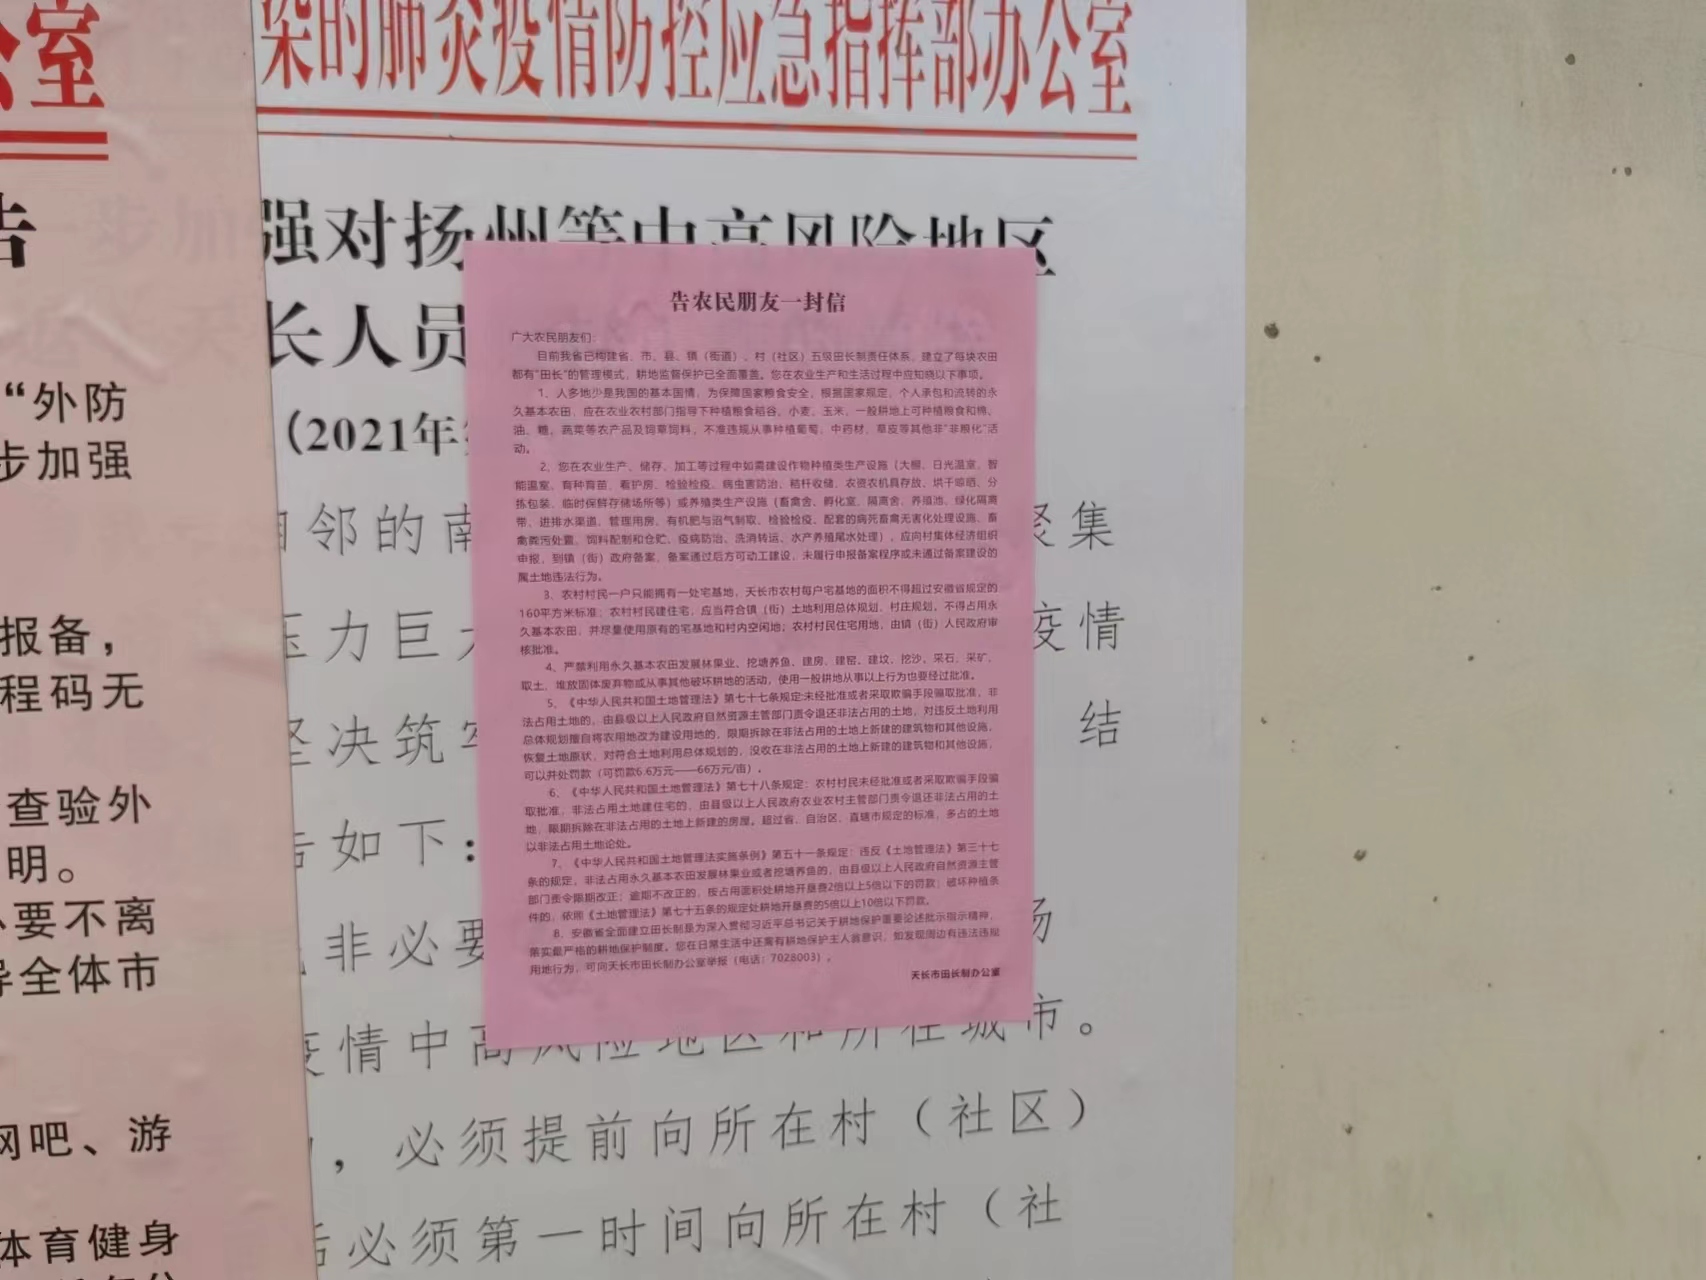 公室
告
“外防
步加强
报备，
程码无
查验外
明。
必要不离
导全体市
网吧、游
体育健身
染的肺炎疫情防控应急指挥部办公室
强对扬州等中高风险地区
长人员
（2021年
相邻的南
聚集
压力巨大
疫情
坚决筑牢
结
告如下：
非必要
扬
疫情中高风险地区和所在城市。
，必须提前向所在村（社区）
后必须第一时间向所在村（社
告农民朋友一封信
广大农民朋友们：
目前我省已构建省、市、县、镇（街道）、村（社区）五级田长制责任体系，建立了每块农田
都有“田长”的管理模式，耕地监督保护已全面覆盖。您在农业生产和生活过程中应知晓以下事项。
1、人多地少是我国的基本国情，为保障国家粮食安全，根据国家规定，个人承包和流转的永
久基本农田，应在农业农村部门指导下种植粮食稻谷、小麦、玉米，一般耕地上可种植粮食和棉、
油、糖、蔬菜等农产品及饲草饲料，不准违规从事种植葡萄、中药材、草皮等其他非“非粮化”活
动。
2、您在农业生产、储存、加工等过程中如需建设作物种植类生产设施（大棚、日光温室、智
能温室、育种育苗、看护房、检验检疫、病虫害防治、秸秆收储、农资农机具存放、烘干晾晒、分
拣包装、临时保鲜存储场所等）或养殖类生产设施（畜禽舍、孵化室、隔离舍、养殖池、绿化隔离
带、进排水渠道、管理用房、有机肥与沼气制取、检验检疫、配套的病死畜禽无害化处理设施、畜
禽粪污处置、饲料配制和仓贮、疫病防治、洗消转运、水产养殖尾水处理），应向村集体经济组织
申报，到镇（街）政府备案，备案通过后方可动工建设，未履行申报备案程序或未通过备案建设的
属土地违法行为。
3、农村村民一户只能拥有一处宅基地，天长市农村每户宅基地的面积不得超过安徽省规定的
160平方米标准；农村村民建住宅，应当符合镇（街）土地利用总体规划、村庄规划，不得占用永
久基本农田，并尽量使用原有的宅基地和村内空闲地；农村村民住宅用地，由镇（街）人民政府审
核批准。
4、严禁利用永久基本农田发展林果业、挖塘养鱼、建房、建窑、建坟、挖沙、采石、采矿、
取土、堆放固体废弃物或从事其他破坏耕地的活动，使用一般耕地从事以上行为也要经过批准。
5、《中华人民共和国土地管理法》第七十七条规定:未经批准或者采取欺骗手段骗取批准，非
法占用土地的，由县级以上人民政府自然资源主管部门责令退还非法占用的土地，对违反土地利用
总体规划擅自将农用地改为建设用地的，限期拆除在非法占用的土地上新建的建筑物和其他设施，
恢复土地原状，对符合土地利用总体规划的，没收在非法占用的土地上新建的建筑物和其他设施，
可以并处罚款（可罚款6.6万元——66万元/亩）。
6、《中华人民共和国土地管理法》第七十八条规定：农村村民未经批准或者采取欺骗手段骗
取批准，非法占用土地建住宅的，由县级以上人民政府农业农村主管部门责令退还非法占用的土
地，限期拆除在非法占用的土地上新建的房屋。超过省、自治区、直辖市规定的标准，多占的土地
以非法占用土地论处。
7、《中华人民共和国土地管理法实施条例》第五十一条规定：违反《土地管理法》第三十七
条的规定，非法占用永久基本农田发展林果业或者挖塘养鱼的，由县级以上人民政府自然资源主管
部门责令限期改正；逾期不改正的，按占用面积处耕地开垦费2倍以上5倍以下的罚款；破坏种植条
件的，依照《土地管理法》第七十五条的规定处耕地开垦费的5倍以上10倍以下罚款。
8、安徽省全面建立田长制是为深入贯彻习近平总书记关于耕地保护重要论述批示指示精神，
落实最严格的耕地保护制度。您在日常生活中还需有耕地保护主人翁意识，如发现周边有违法违规
用地行为，可向天长市田长制办公室举报（电话：7028003）。
天长市田长制办公室